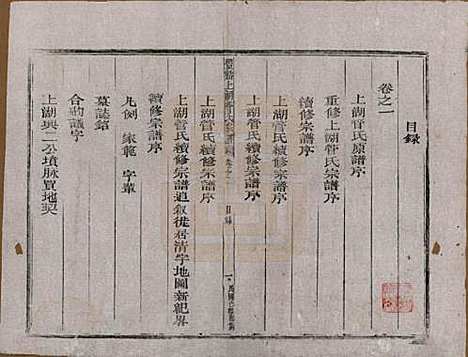 目録
卷之一
上湖管氏原譜序
重修上湖管氏宗譜序
續修宗譜序
上湖管氏續修宗譜序
上湖管氏續修宗譜序
目録
一
上湖管氏續修宗譜序
上湖管氏續修宗譜追叙從居清字地圖新紀畧
續修宗譜序
凡例 家範 字輩
墓誌銘
合約議字
上湖興二公墳脉買地契